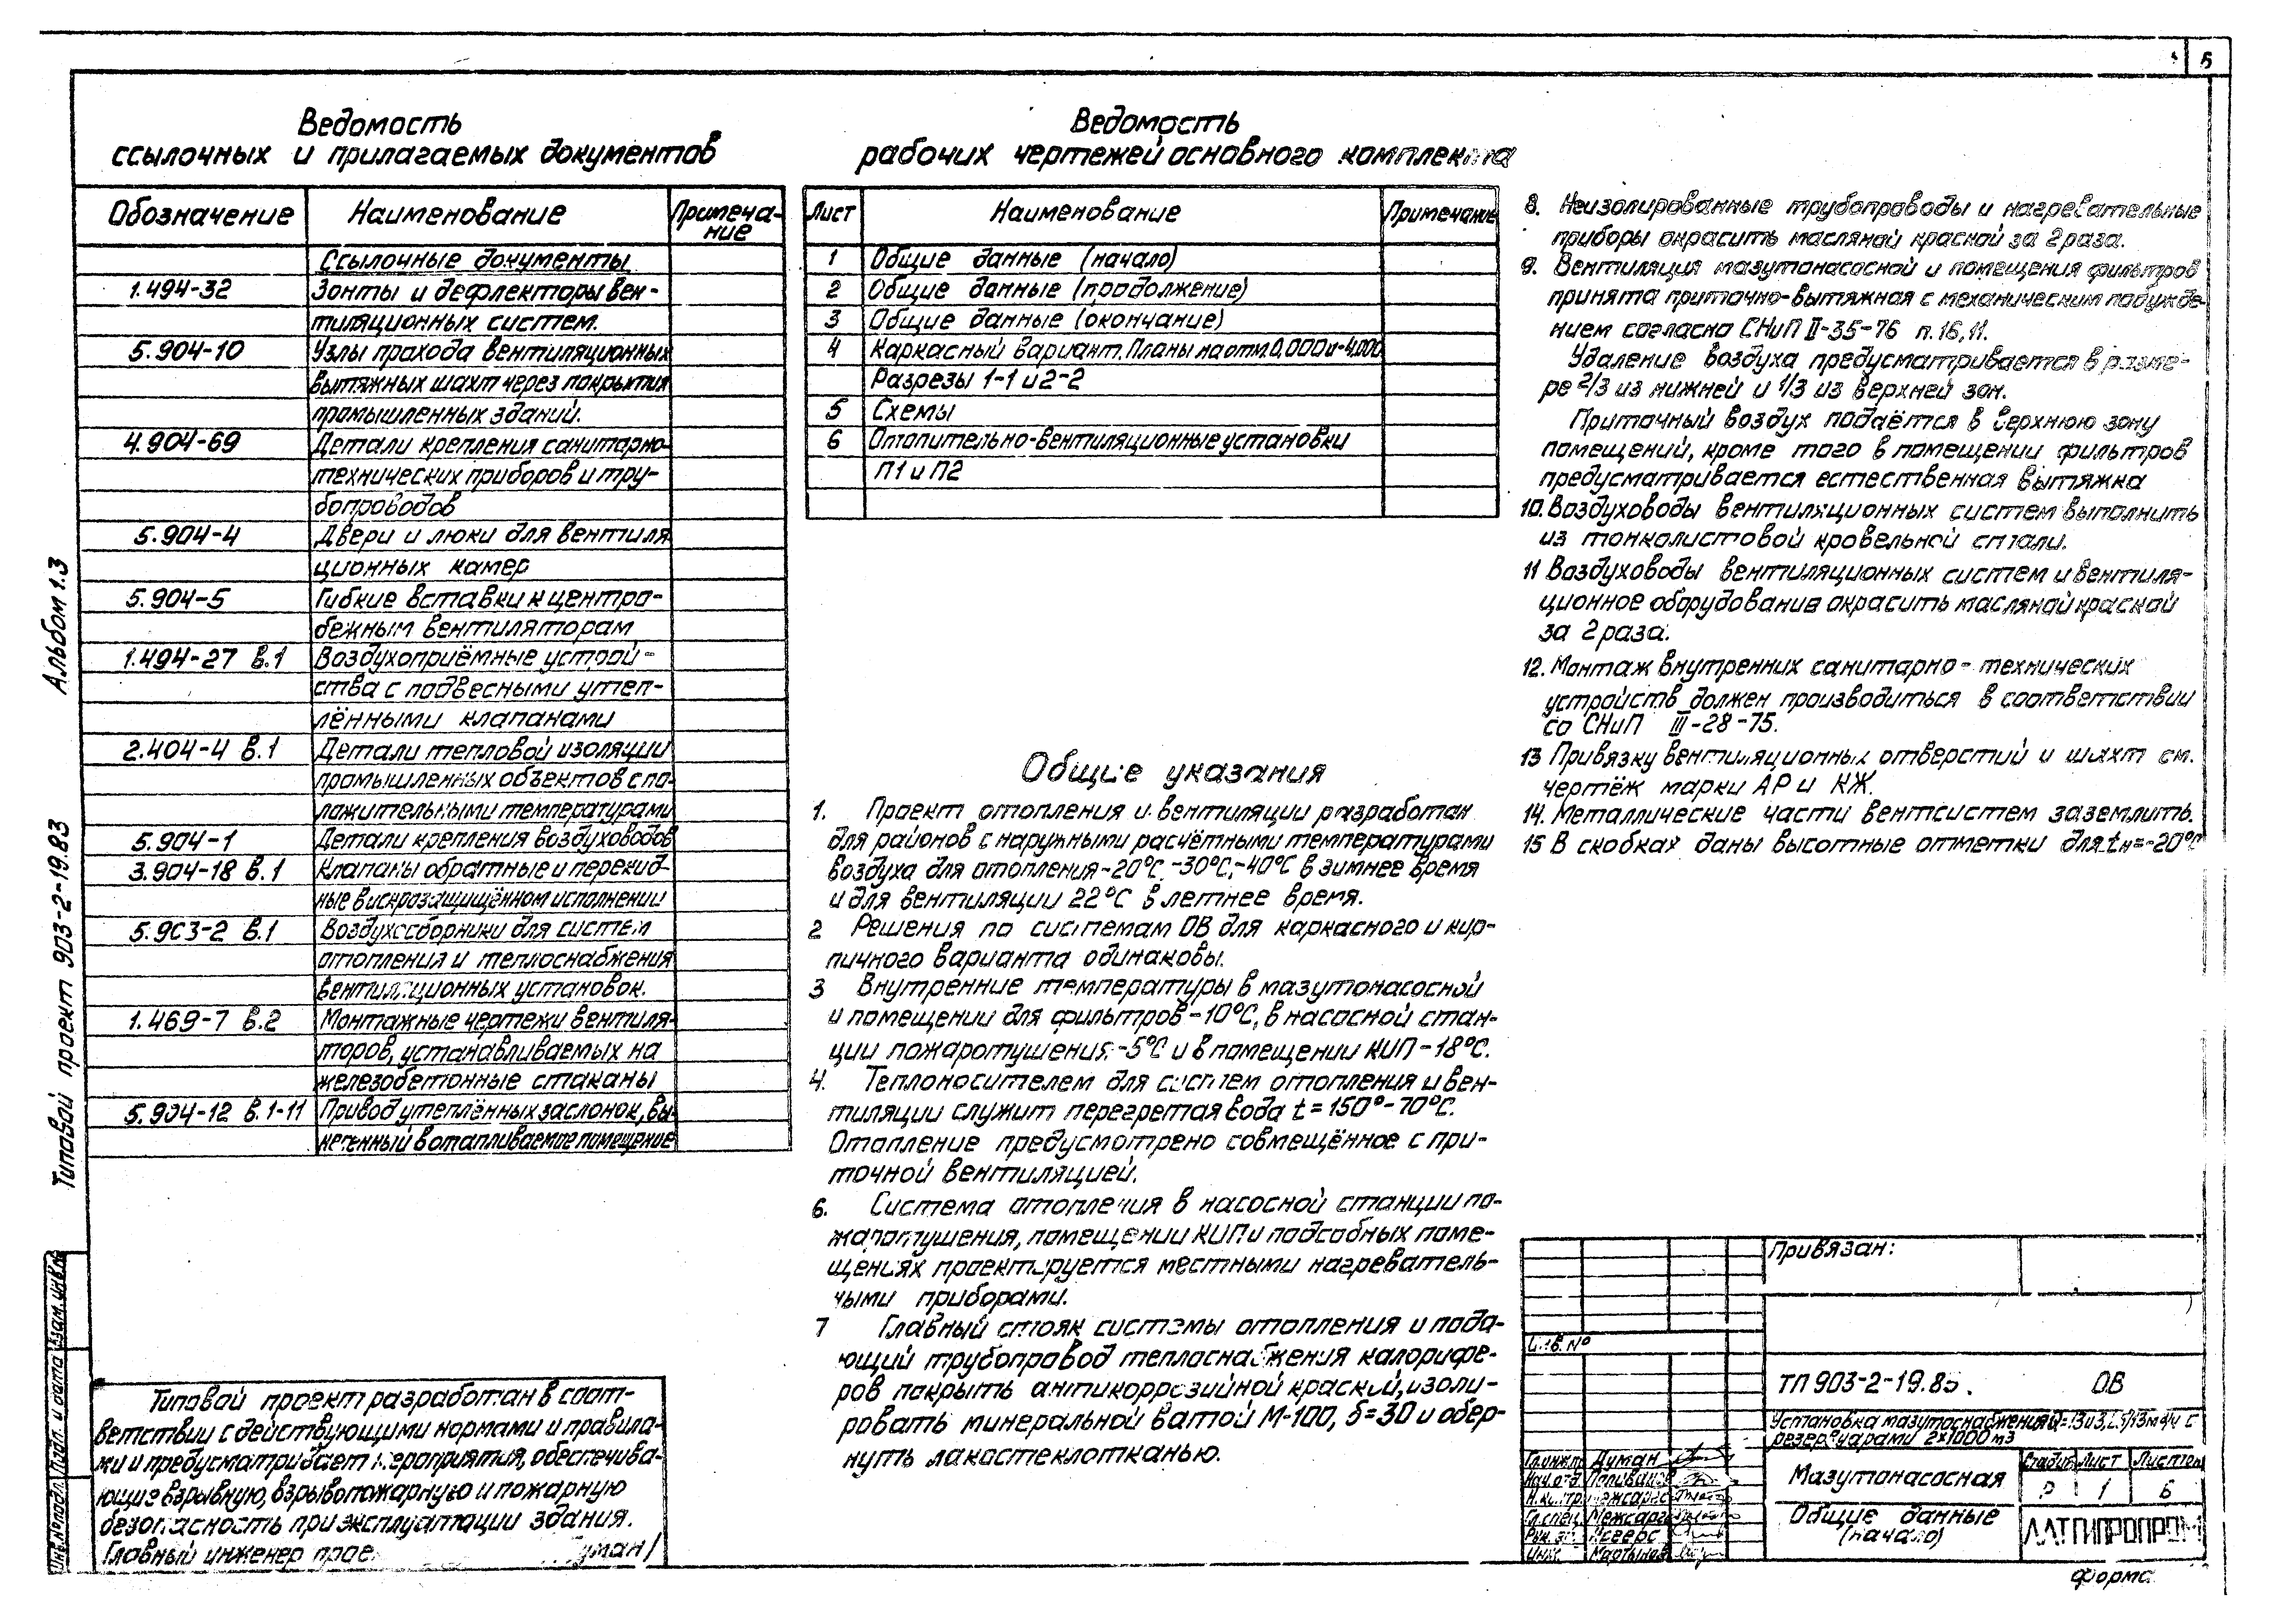 5
Ведомость
ссылочных и прилагаемых документов
Обозначение Наименование Примеча-
ние
Ссылочные документы
1.494-32 Зонты и дефлекторы вен-
тиляционных систем.
5.904-10 Узлы прохода вентиляционных
вытяжных шахт через покрытия
промышленных зданий.
4.904-69 Детали крепления санитарно-
технических приборов и тру-
бопроводов
5.904-4 Двери и люки для вентиля
ционных камер
5.904-5 Гибкие вставки к центро-
бежным вентиляторам
1.494-27 в.1 Воздухоприёмные устрой-
ства с подвесными утеп-
лёнными клапанами
2.404-4 в.1 Детали тепловой изоляции
промышленных объектов с по-
ложительными температурами
5.904-1 Детали крепления воздуховодов
3.904-18 в.1 Клапаны обратные и перекид-
ные в искрозащищённом исполнении
5.903-2 в.1 Воздухосборники для систем
отопления и теплоснабжения
вентиляционных установок.
1.469-7 в.2 Монтажные чертежи вентиля-
торов, устанавливаемых на
железобетонные стаканы
5.904-12 в.1-11 Привод утеплённых заслонок, вы-
несенный в отапливаемое помещение
Типовой проект разработан в соот-
ветствии с действующими нормами и правила-
ми и предусматривает мероприятия, обеспечива-
ющие взрывную, взрывопожарную и пожарную
безопасность при эксплуатации здания.
Главный инженер прое
Ведомость
рабочих чертежей основного комплекта
Лист Наименование Примечание
1 Общие данные (начало)
2 Общие данные (продолжение)
3 Общие данные (окончание)
4 Каркасный вариант. Планы на отм. 0,000 и -4,000
Разрезы 1-1 и 2-2
5 Схемы
6 Отопительно-вентиляционные установки
П1 и П2
Общие указания
1. Проект отопления и вентиляции разработан
для районов с наружными расчётными температурами
воздуха для отопления -20°С, -30°С, -40°С в зимнее время
и для вентиляции 22°С в летнее время.
2 Решения по системам ОВ для каркасного и кир-
пичного варианта одинаковы.
3 Внутренние температуры в мазутонасосной
и помещении для фильтров - 10°С, в насосной стан-
ции пожаротушения - 5°С и в помещении КИП - 18°С.
4. Теплоносителем для систем отопления и вен-
тиляции служит перегретая вода t = 150°-70°С.
Отопление предусмотрено совмещённое с при-
точной вентиляцией.
6. Система отопления в насосной станции по-
жаротушения, помещении КИП и подсобных поме-
щениях проектируется местными нагреватель-
ными приборами.
7 Главный стояк системы отопления и пода-
ющий трубопровод теплоснабжения калорифе-
ров покрыть антикоррозийной краской, изоли-
ровать минеральной ватой М-100, δ=30 и обер-
нуть лакостеклотканью.
8. Неизолированные трубопроводы и нагревательные
приборы окрасить масляной краской за 2 раза.
9. Вентиляция мазутонасосной и помещения фильтров
принята приточно-вытяжная с механическим побужде-
нием согласно СНиП II-35-76 п.16,11.
Удаление воздуха предусматривается в разме-
ре 2/3 из нижней и 1/3 из верхней зон.
Приточный воздух подаётся в верхнюю зону
помещений, кроме того в помещении фильтров
предусматривается естественная вытяжка
10. Воздуховоды вентиляционных систем выполнить
из тонколистовой кровельной стали.
11 Воздуховоды вентиляционных систем и вентиля-
ционное оборудование окрасить масляной краской
за 2 раза.
12. Монтаж внутренних санитарно-технических
устройств должен производиться в соответствии
со СНиП III-28-75.
13 Привязку вентиляционных отверстий и шахт см.
чертёж марки АР и КЖ.
14. Металлические части вентсистем заземлить.
15 В скобках даны высотные отметки для tн=-20°С
Привязан:
Инв. №
ТП 903-2-19.83. ОВ
Установка мазутоснабжения
резервуарами 2х1000 м3
Гл.инж.п Думан
Нач.отд. Поливанов
Н.контр.
Гл.спец.
Рук. гр.
Инж. Мартынов
Мазутонасосная
Стадия Лист Листов
Р 1 6
Общие данные
(начало)
ЛАТГИПРОПРОМ
Форма
Альбом 1.3
Типовой проект 903-2-19.83
Взам. инв. №
Подп. и дата
Инв. № подл.